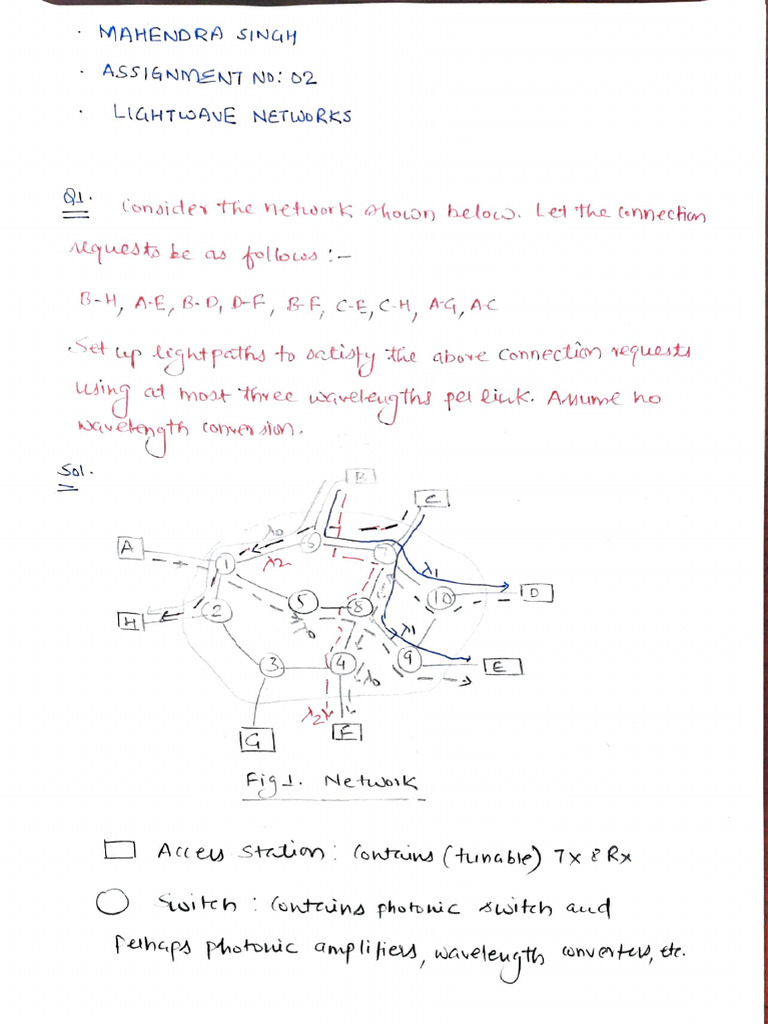 · MAHENDRA SINGH
· ASSIGNMENT NO: 02
· LIGHTWAVE NETWORKS
Q1. Consider the network shown below. Let the connection
requests be as follows :-
B-H, A-E, B-D, D-F, B-F, C-E, C-H, A-G, A-C
. Set up lightpaths to satisfy the above connection requests
using at most three wavelengths per link. Assume no
wavelength conversion.
Sol.
B
C
λ0
6
A
1
λ2
7
λ1
D
5
8
10
H
2
λ0
λ1
3
4
9
E
λ0
λ2
G
F
Fig 1. Network
Access Station: Contains (tunable) Tx & Rx
Switch: Contains photonic switch and
Perhaps photonic amplifiers, wavelength converters, etc.